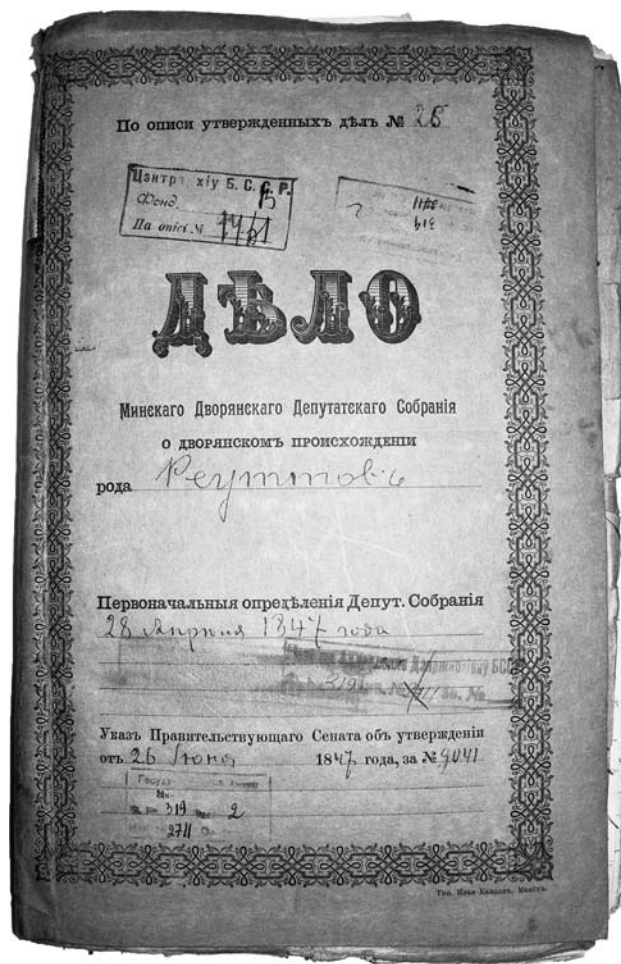 По описи утвержденныхъ дѣлъ № 28
Б. С. С. Р.
Фонд
Па опісі №
ДѢЛО
Минскаго Дворянскаго Депутатскаго Собранія
О ДВОРЯНСКОМЪ ПРОИСХОЖДЕНІИ
рода Реуттовъ
Первоначальныя опредѣленія Депут. Собранія
28 Апрѣля 1847 года
319
Указъ Правительствующаго Сената объ утвержденіи
отъ 26 Іюня 1847 года, за № 9041
319 2
2711
Тип. Минскъ.